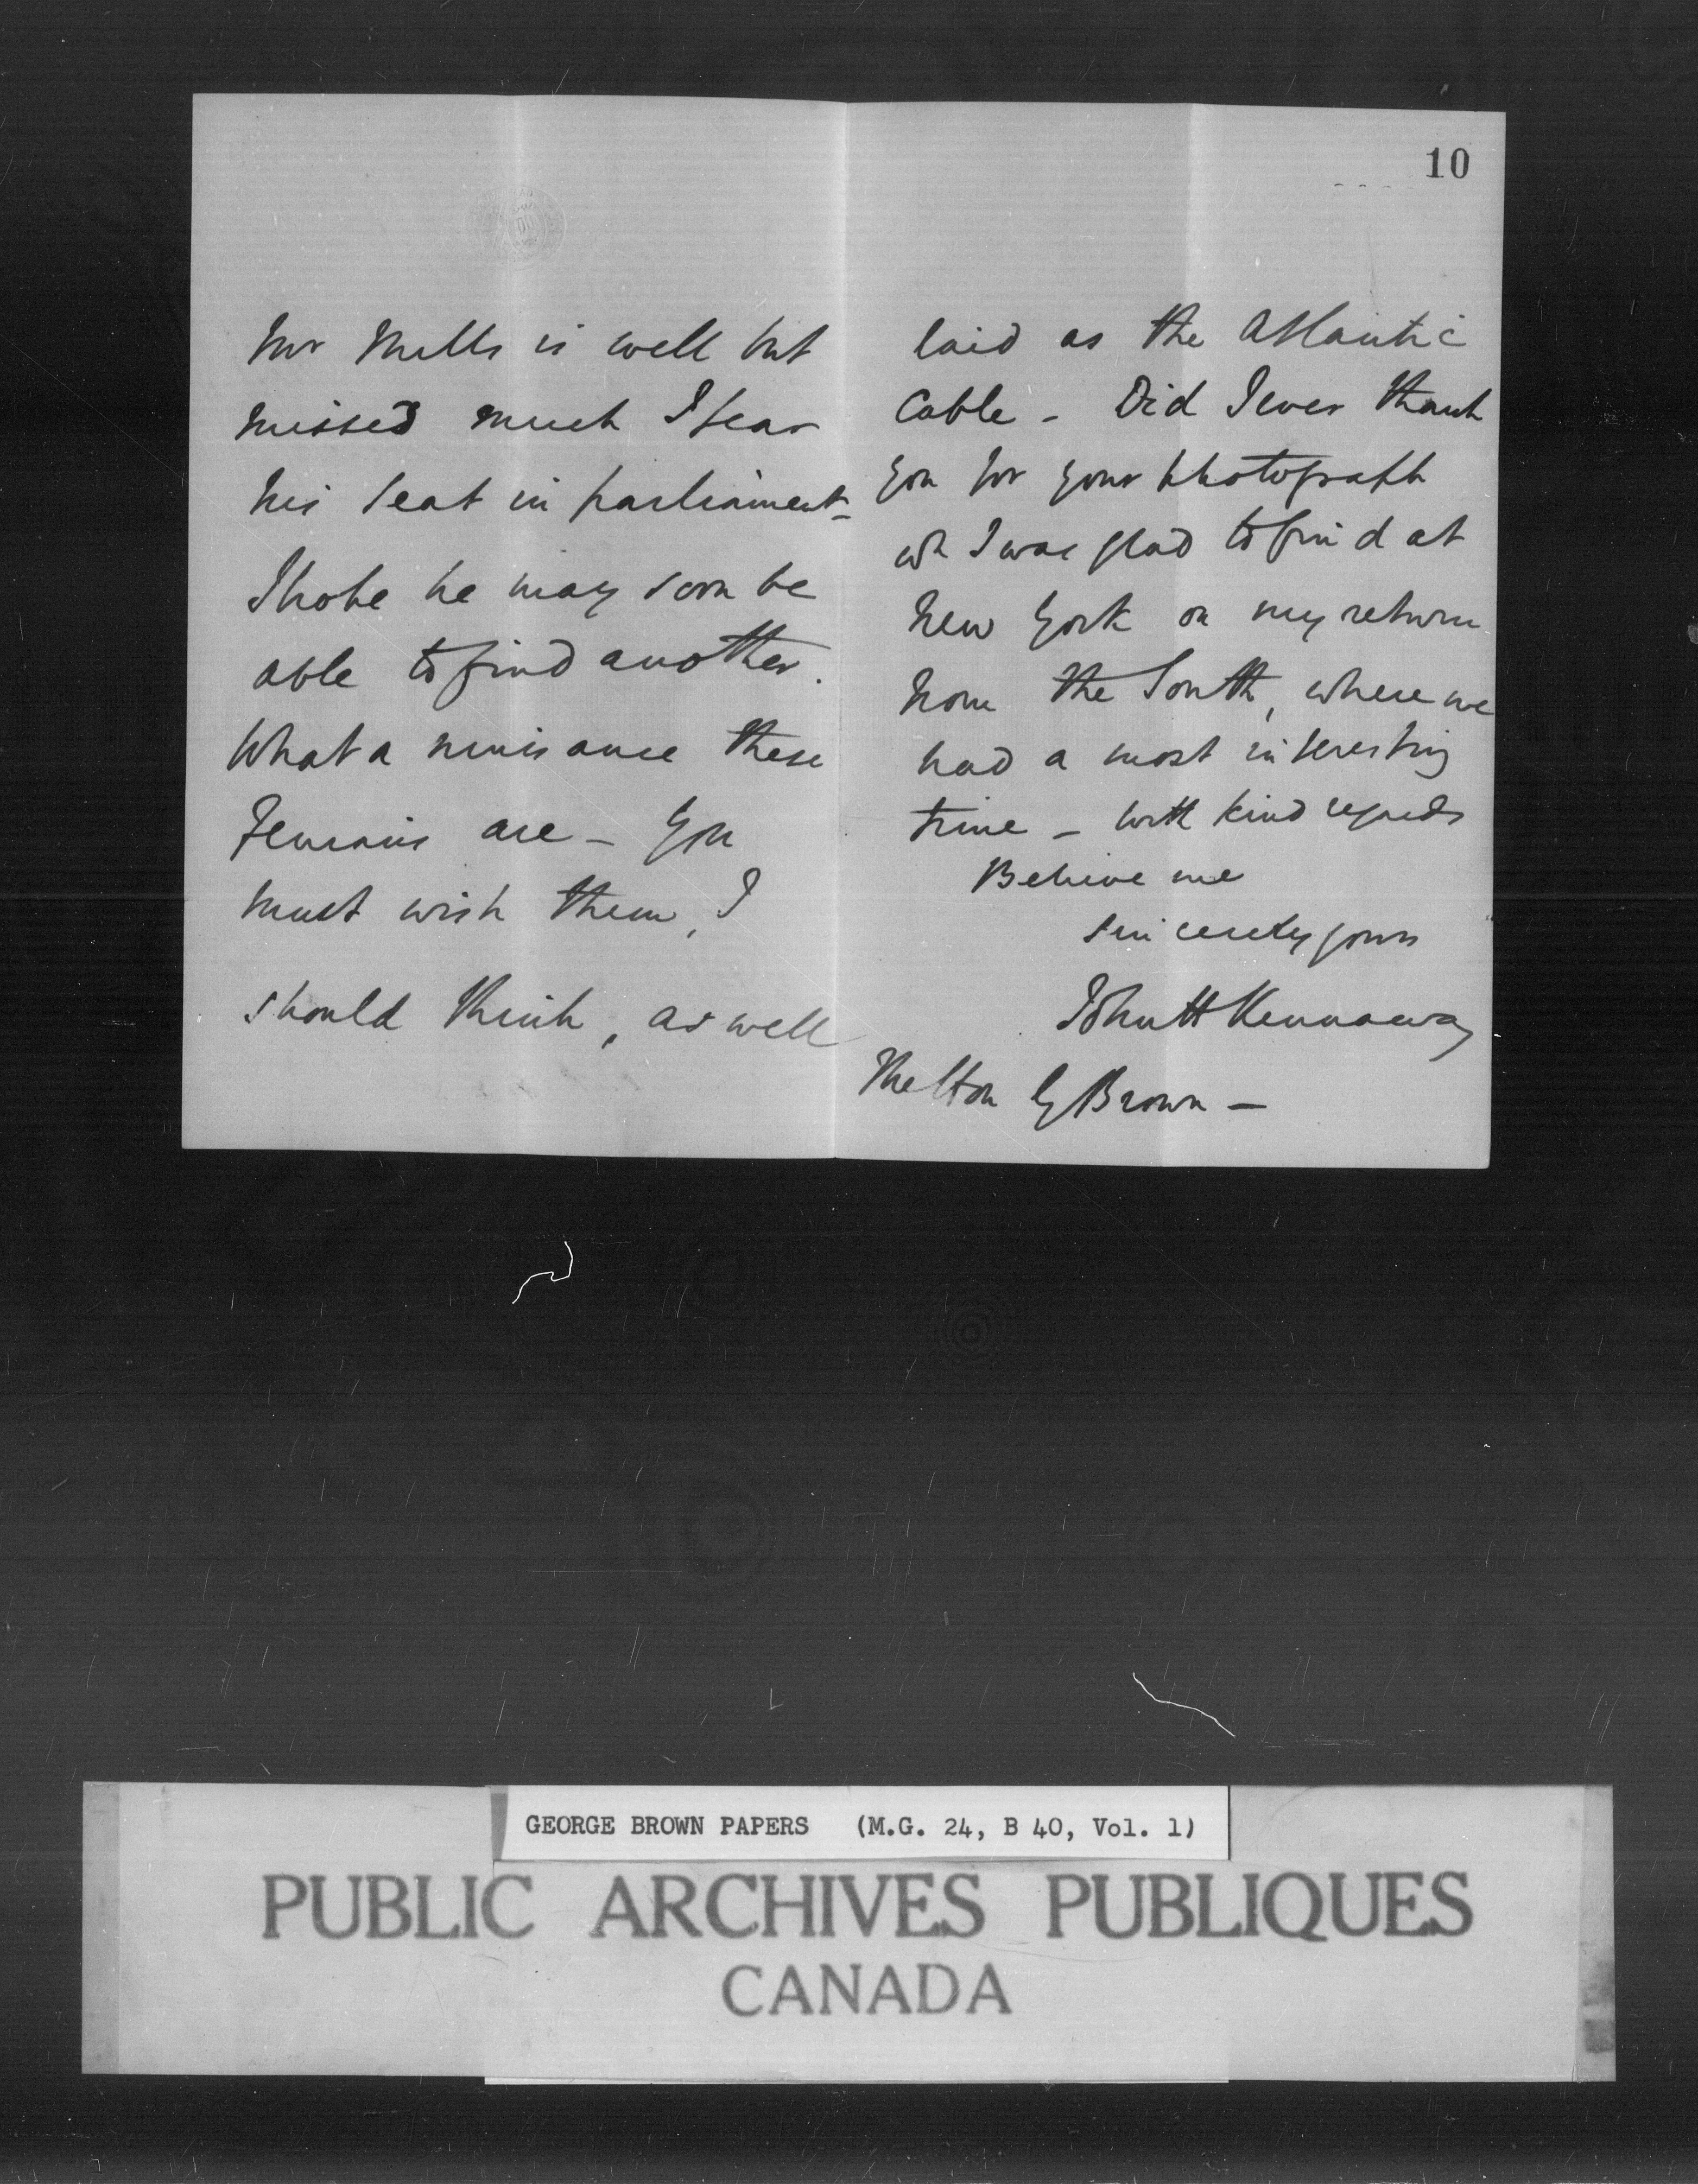 10
Mr Mills is well but
misses much I fear
his seat in parliament -
I hope he may soon be
able to find another.
What a nuisance these
Fenians are - You
must wish them, I
should think, as well
laid as the Atlantic
Cable - Did I ever thank
you for your photograph
wh I was glad to find at
New York on my return
from the South, where we
had a most interesting
time - With kind regards
Believe me
sincerely yours
John H Kennaway
The Hon G Brown -
GEORGE BROWN PAPERS (M.G. 24, B 40, Vol. 1)
PUBLIC ARCHIVES PUBLIQUES
CANADA